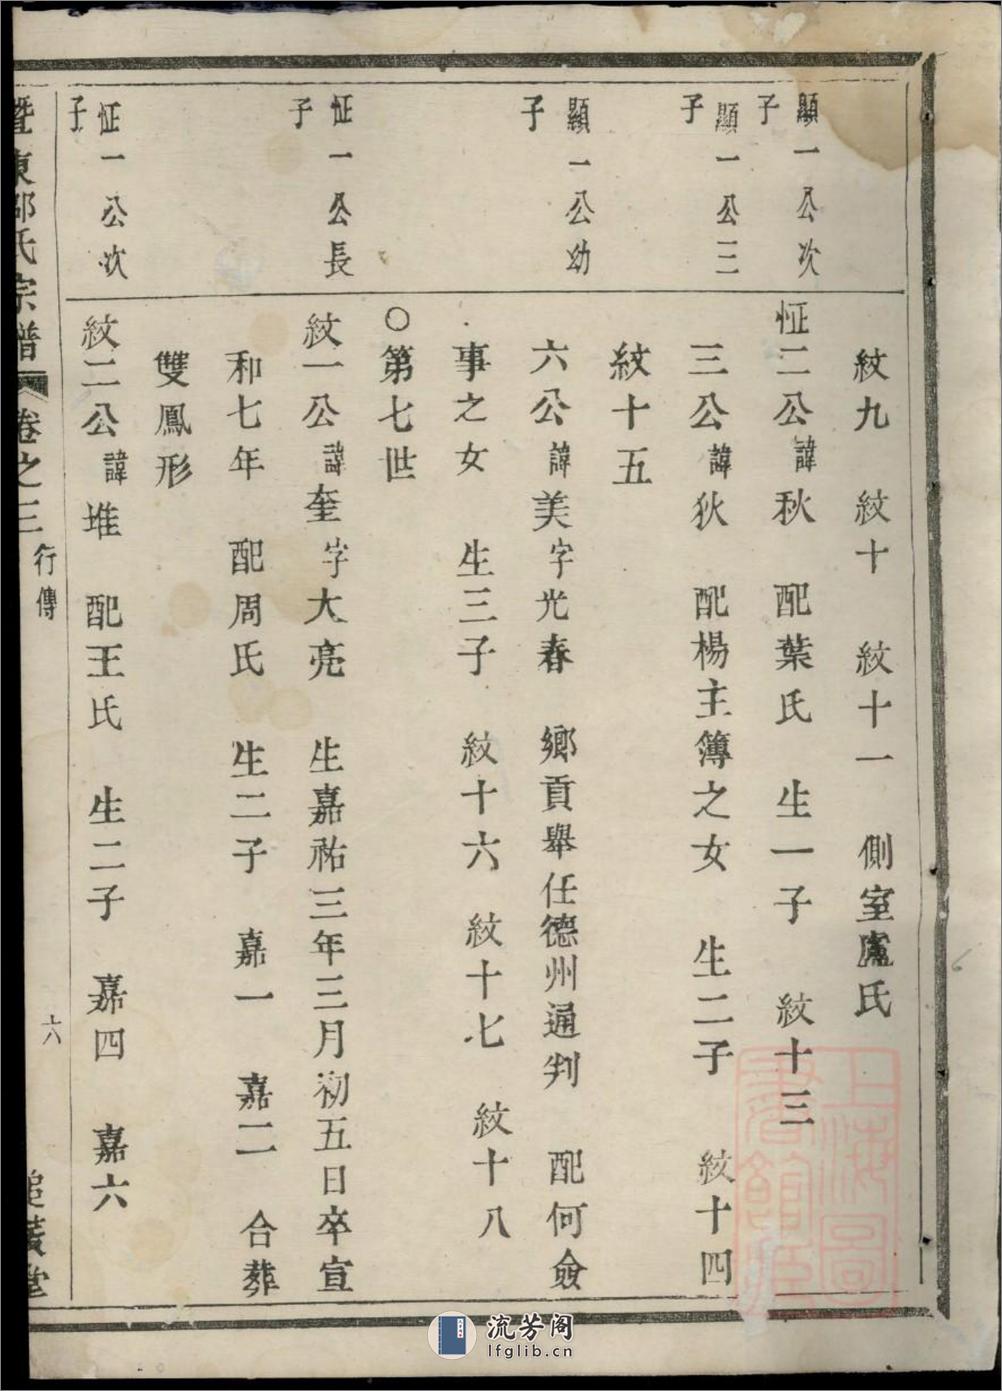 紋九 紋十 紋十一 側室盧氏
顯一公次子
怔二公諱秋 配葉氏 生一子 紋十三
顯一公三子
三公諱狄 配楊主簿之女 生二子 紋十四
紋十五
顯一公幼子
六公諱美字光春 鄉貢舉任德州通判 配何僉
事之女 生三子 紋十六 紋十七 紋十八
○第七世
怔一公長子
紋一公諱奎字大亮 生嘉祐三年三月初五日卒宣
和七年 配周氏 生二子 嘉一 嘉二 合葬
雙鳳形
怔一公次子
紋二公諱堆 配王氏 生二子 嘉四 嘉六
暨東邵氏宗譜 卷之三 行傳 六
上海圖書館藏
流芳阁
lfglib.cn